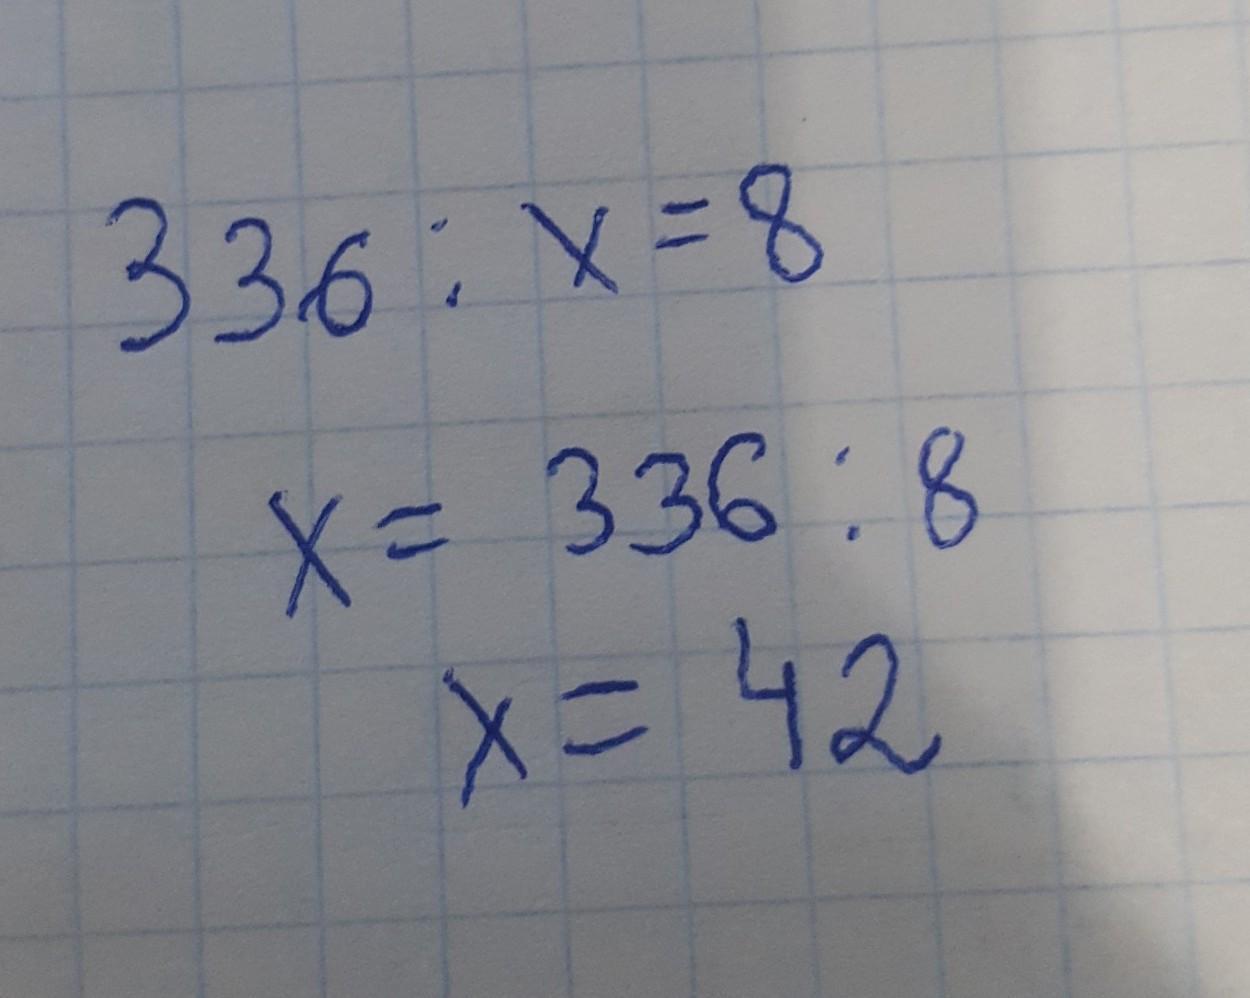 336 : x = 8
x = 336 : 8
x = 42